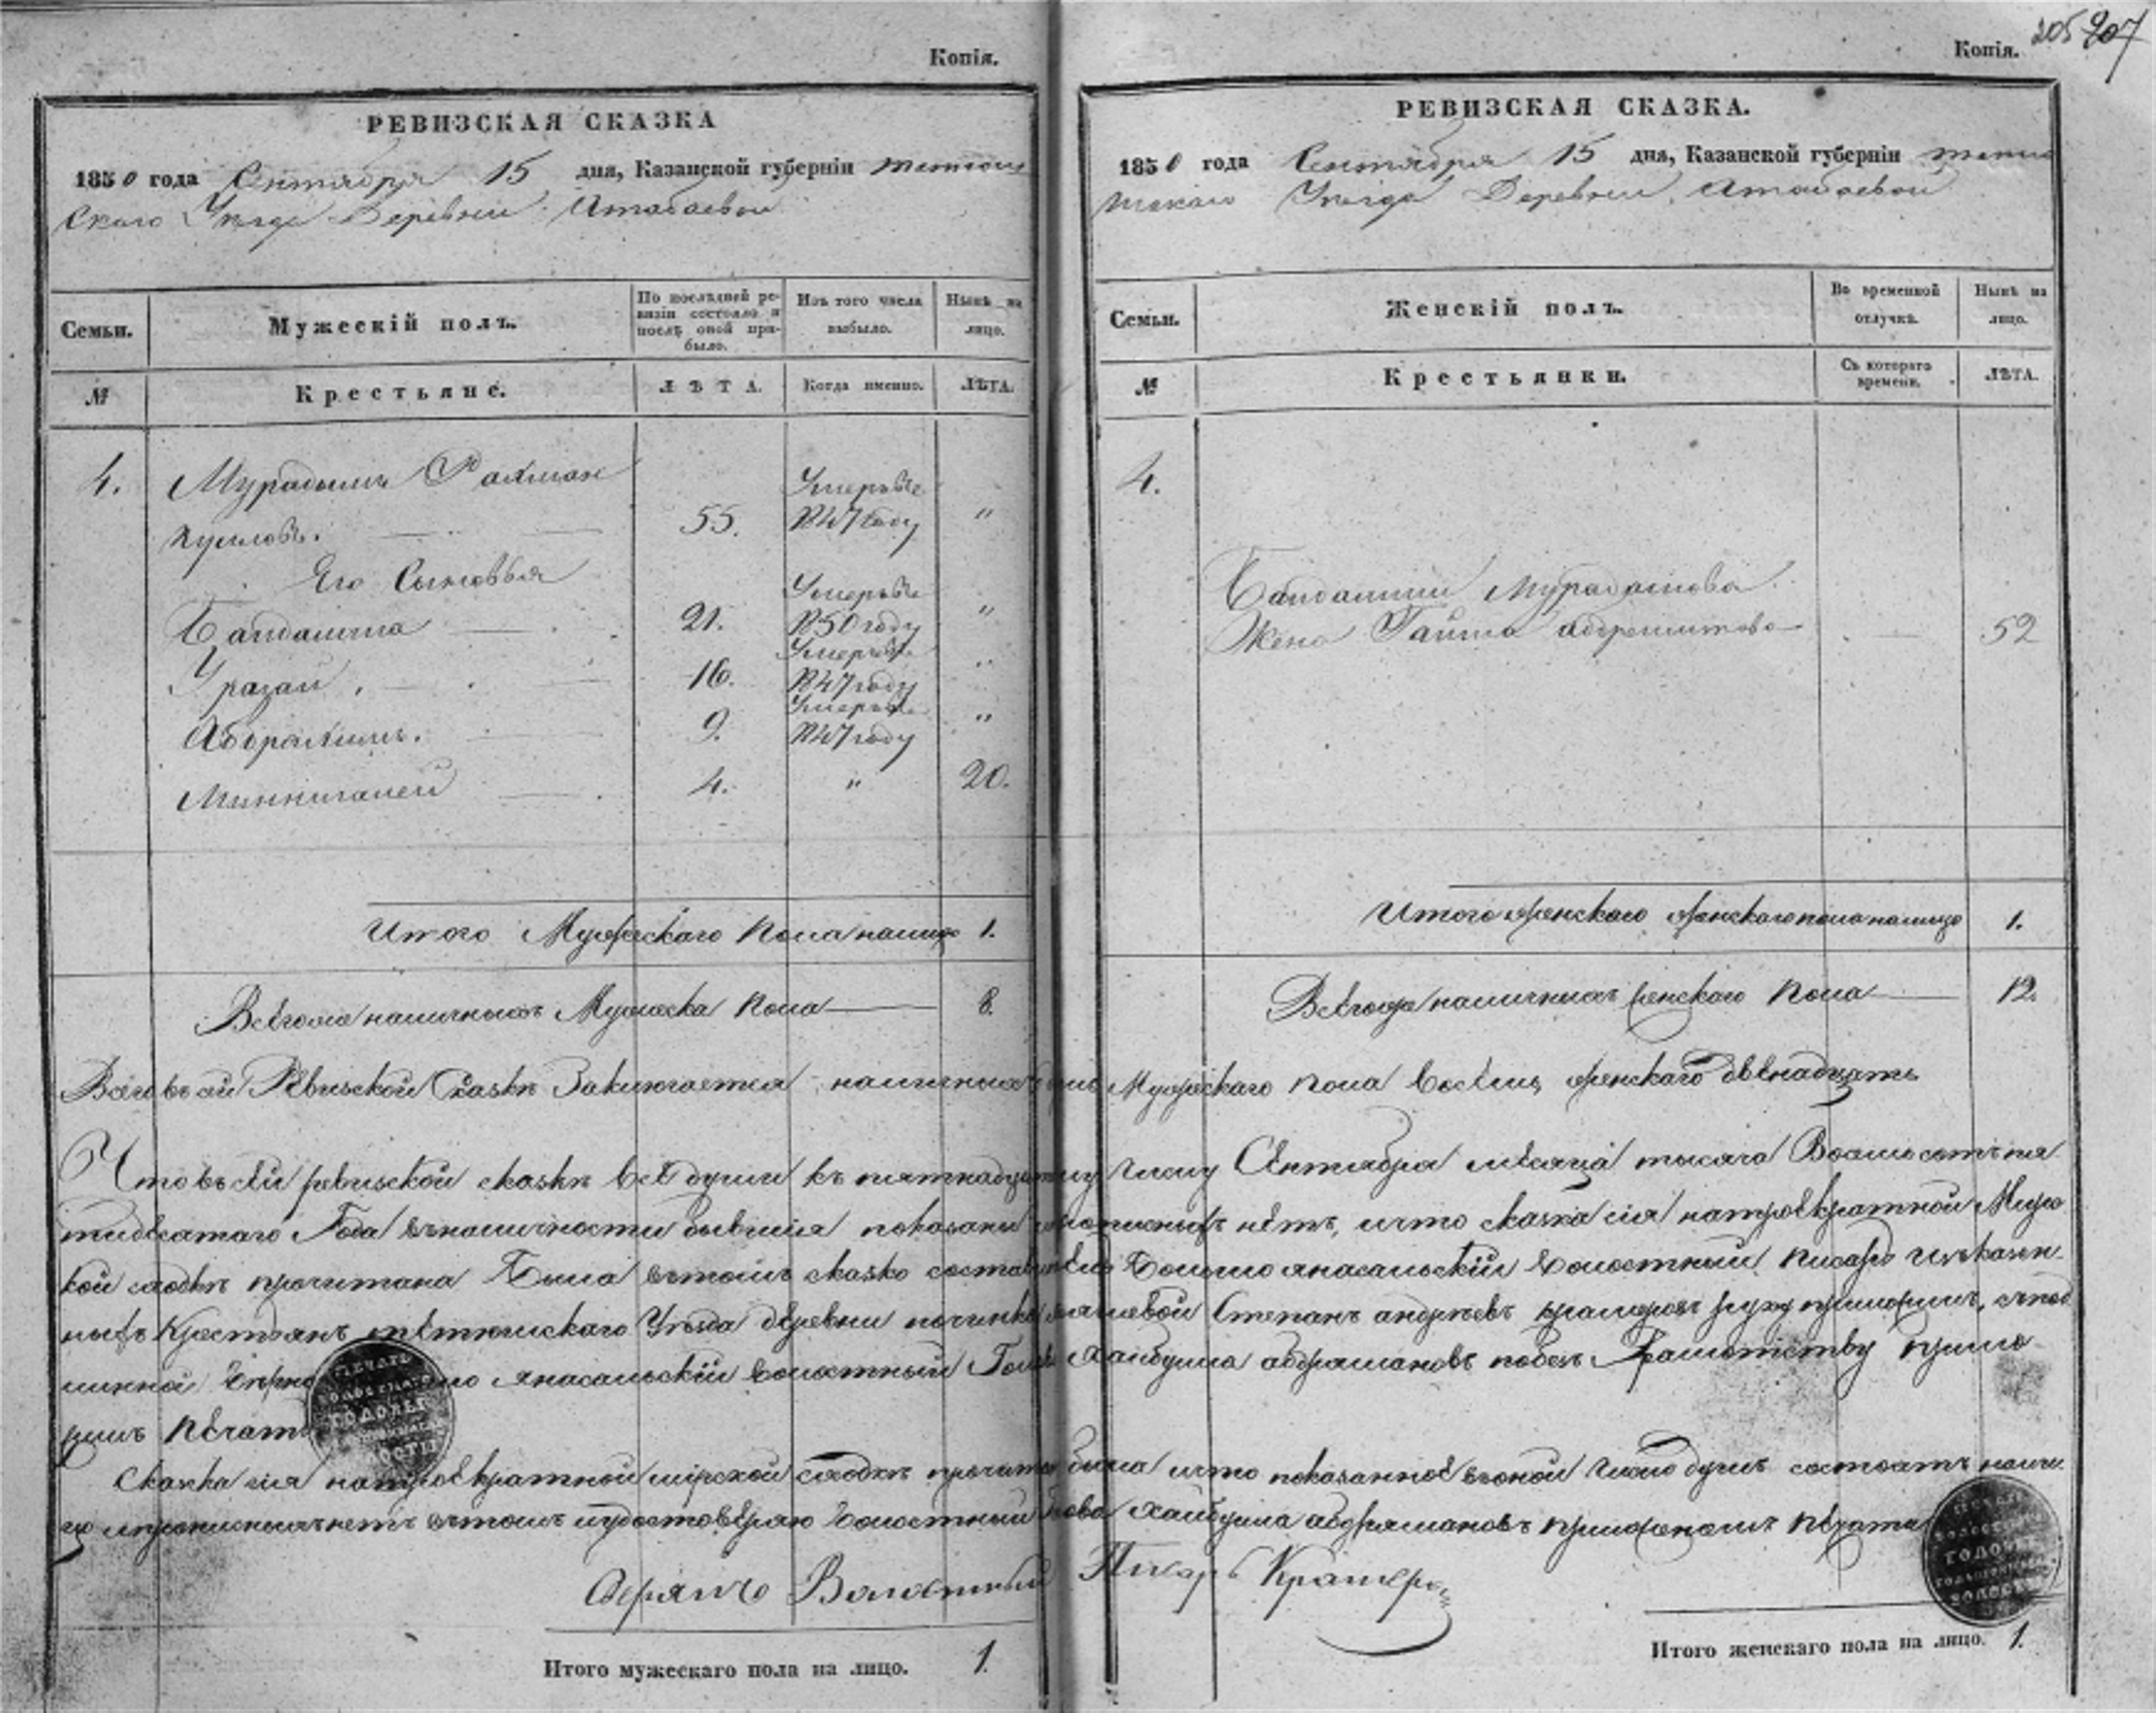 Копія.
РЕВИЗСКАЯ СКАЗКА
1850 года Сентября 15 дня, Казанской губерніи тетюш
скаго Уезда Деревни Атабаевой
Семьи.
Мужескій полъ.
По послѣдней ре-
визіи состояло и
послѣ оной при-
было.
Изъ того числа
выбыло.
Нынѣ на
лицо.
№
Крестьяне.
ЛѢТА.
Когда именно.
ЛѢТА.
4. Мурадымъ Рахман
куловъ. 55. Умеръ въ 1847 году "
Его Сыновья
Бандамша 21. Умеръ въ 1850 году "
Уразай 16. Умеръ въ 1847 году "
Абдрахимъ. 9. Умеръ въ 1847 году "
Миннигалей 4. " 20.
Итого Мужескаго пола налицо 1.
Всего наличныхъ Мужеска пола 8.
Копія.
205 207
РЕВИЗСКАЯ СКАЗКА.
1850 года Сентября 15 дня, Казанской губерніи тетю
шскаго Уезда Деревни Атабаевой
Семьи.
Женскій полъ.
Во временной
отлучкѣ.
Нынѣ на
лицо.
№
Крестьянки.
Съ котораго
времени.
ЛѢТА.
4.
Жена 52
Итого женскаго женскаго пола налицо 1.
наличныхъ женскаго пола 12.
Всего въ сей Ревиской Сказкѣ Заключается наличныхъ душ Мужескаго пола восемь женскаго двенадцать
Что въ сей ревиской сказкѣ все души къ пятнадцатому числу Сентября месяца тысяча Восемьсотъ пя
тидесятаго Года въ наличности бывшия показаны прописныхъ нетъ, и что сказка сия на троекратной Мирс
кой сходкѣ прочитана Была въ томъ волостный писарь
Крестьянъ тетюшскаго Уезда деревни Степанъ андреевъ руку приложилъ,
волостный Голова Хайбулла абдрашановъ прило
жилъ печать
Сказка сия на троекратной мирской сходкѣ прочитана была и что показанное въ оной число душъ состоятъ нали
цо и прописныхъ нетъ въ томъ и удостоверяю Волостный Голова Хайбулла абдрашановъ приложениемъ печати
Волостный Писарь
Итого мужескаго пола на лицо. 1.
Итого женскаго пола на лицо. 1.